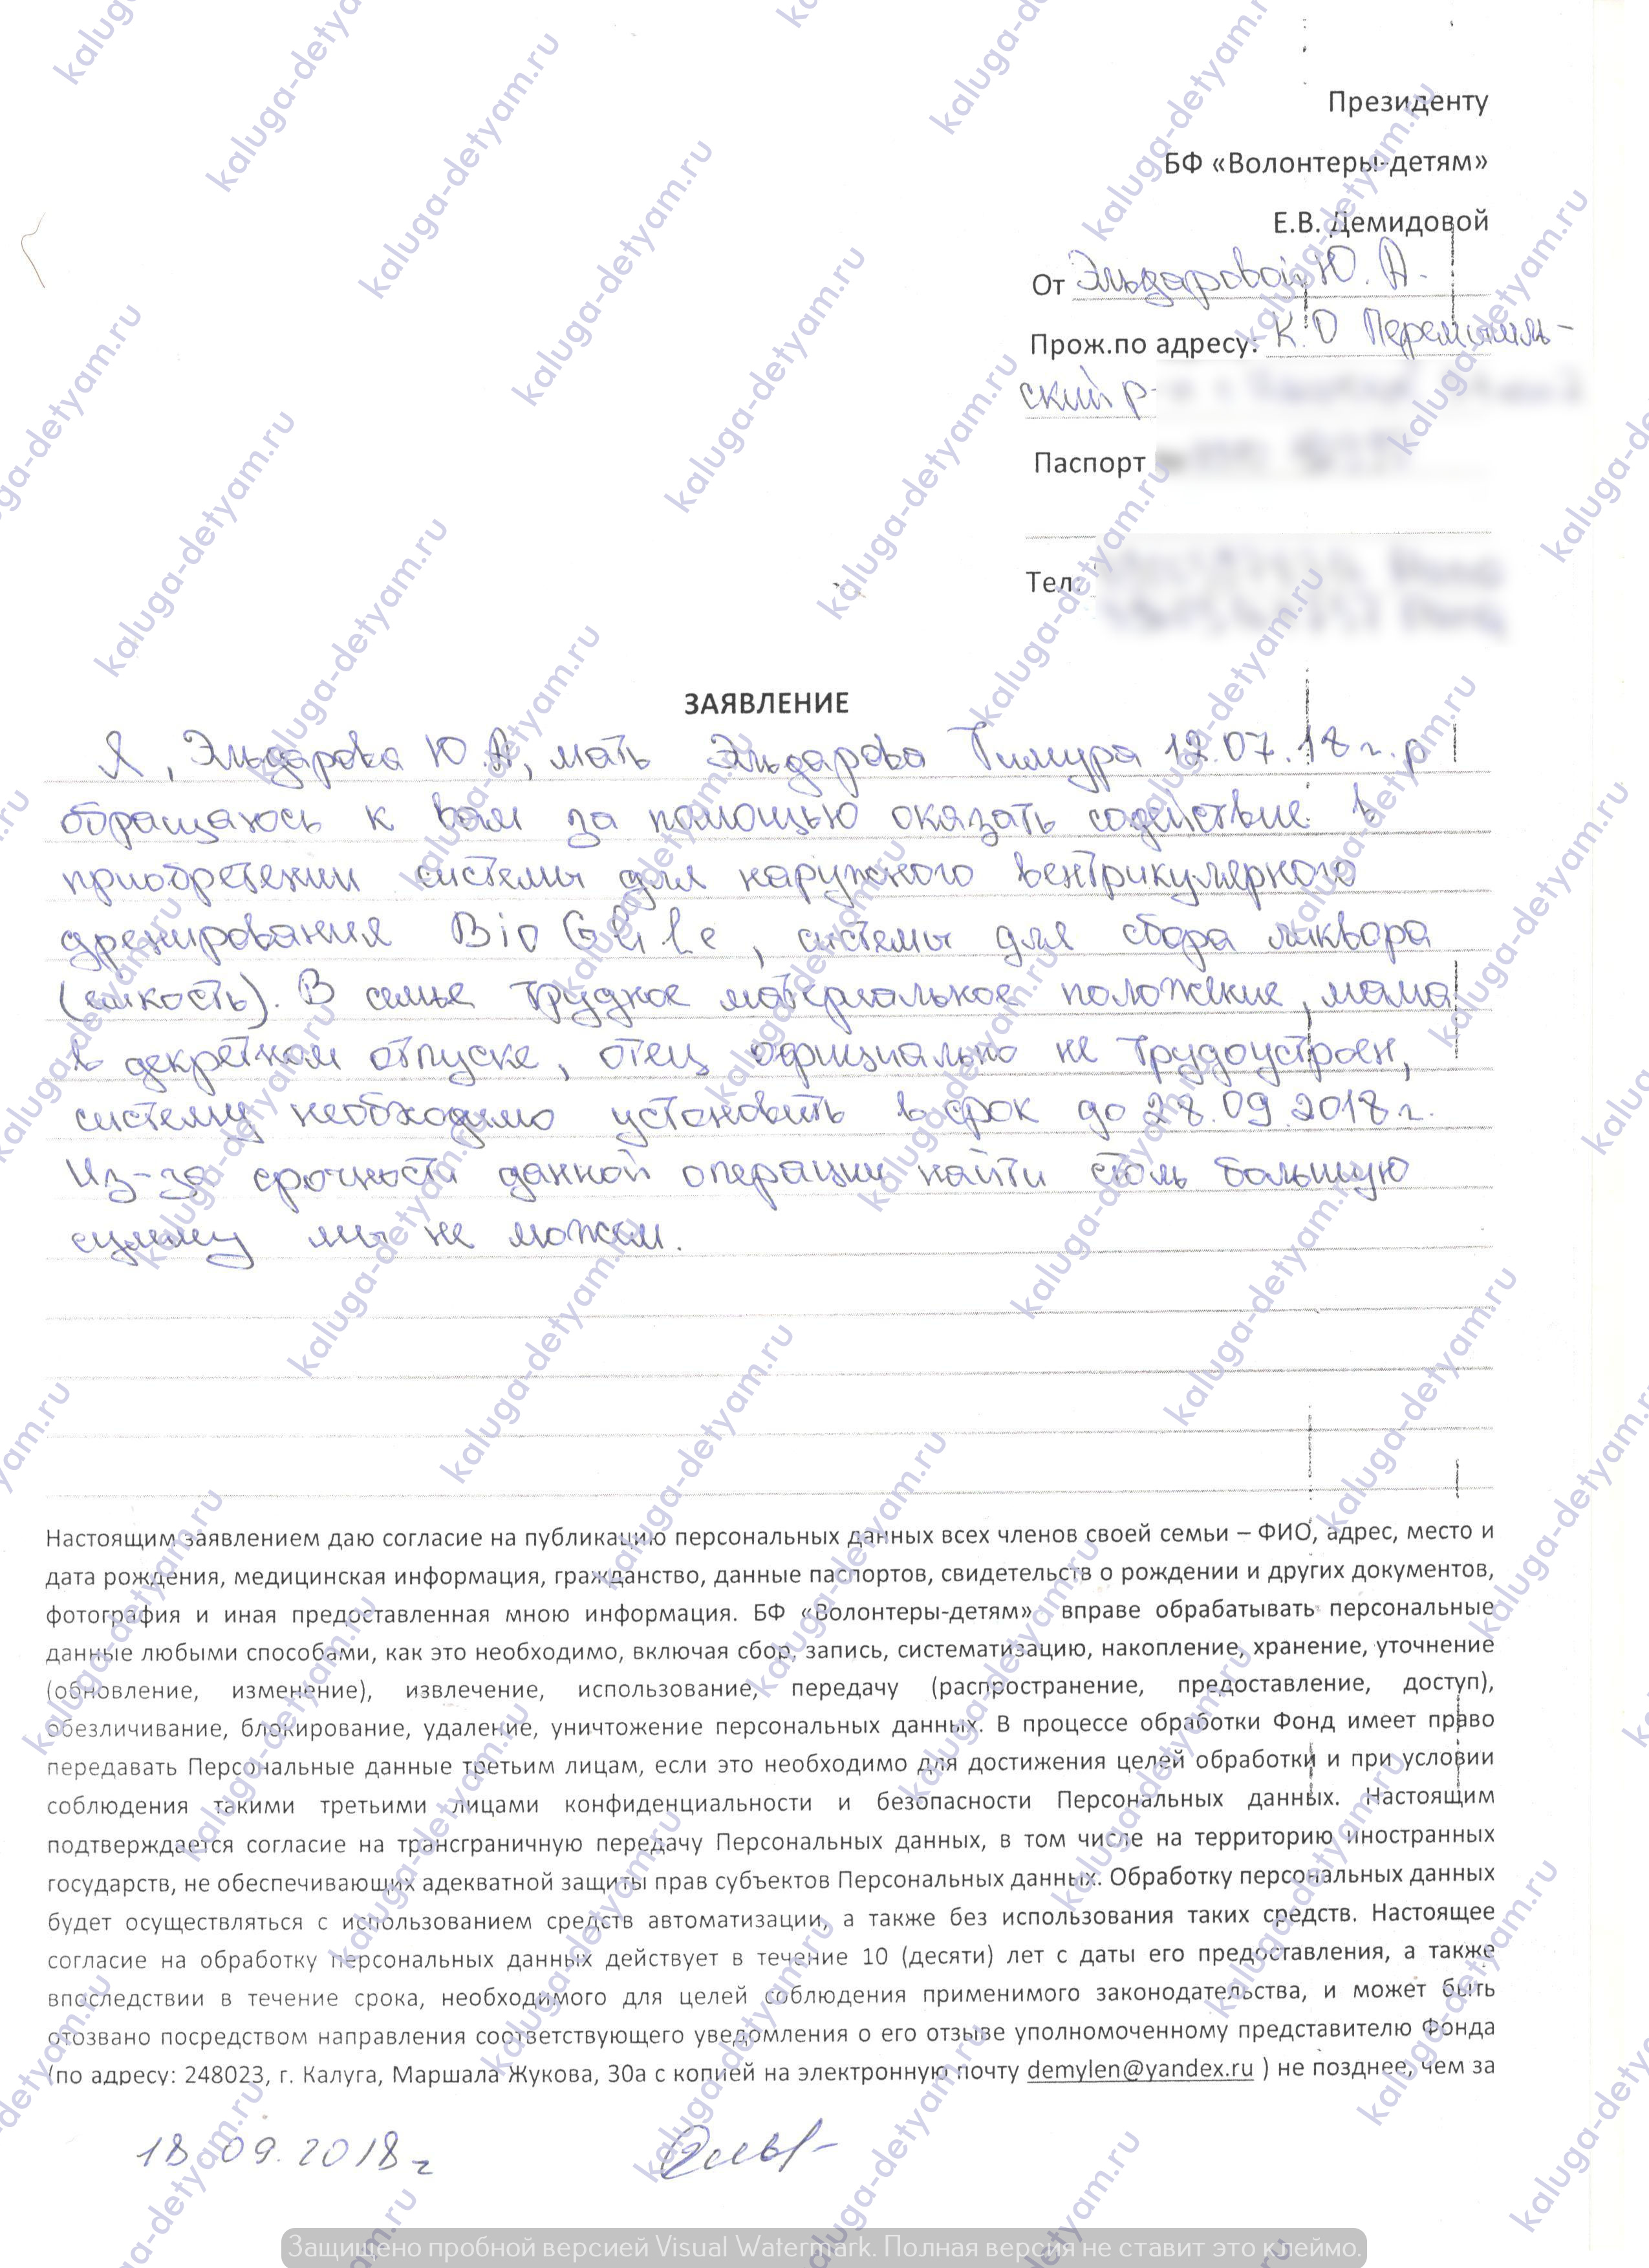 Президенту
БФ «Волонтеры-детям»
Е.В. Демидовой
От Эльдаровой Ю. А.
Прож.по адресу: К.О Перемышль-
ский р-
Паспорт
Тел:
ЗАЯВЛЕНИЕ
Я, Эльдарова Ю.А, мать Эльдарова Тимура 12.07.18 г. р
обращаюсь к вам за помощью оказать содействие в
приобретении системы для наружного вентрикулярного
дренирования, системы для сбора ликвора
(емкость). В семье трудное материальное положение, мама
в декретном отпуске, отец официально не трудоустроен,
систему необходимо установить в срок до 28.09.2018 г.
Из-за срочности данной операции найти столь большую
сумму мы не можем.
Настоящим заявлением даю согласие на публикацию персональных данных всех членов своей семьи – ФИО, адрес, место и
дата рождения, медицинская информация, гражданство, данные паспортов, свидетельств о рождении и других документов,
фотография и иная предоставленная мною информация. БФ «Волонтеры-детям» вправе обрабатывать персональные
данные любыми способами, как это необходимо, включая сбор, запись, систематизацию, накопление, хранение, уточнение
(обновление, изменение), извлечение, использование, передачу (распространение, предоставление, доступ),
обезличивание, блокирование, удаление, уничтожение персональных данных. В процессе обработки Фонд имеет право
передавать Персональные данные третьим лицам, если это необходимо для достижения целей обработки и при условии
соблюдения такими третьими лицами конфиденциальности и безопасности Персональных данных. Настоящим
подтверждается согласие на трансграничную передачу Персональных данных, в том числе на территорию иностранных
государств, не обеспечивающих адекватной защиты прав субъектов Персональных данных. Обработку персональных данных
будет осуществляться с использованием средств автоматизации, а также без использования таких средств. Настоящее
согласие на обработку персональных данных действует в течение 10 (десяти) лет с даты его предоставления, а также
впоследствии в течение срока, необходимого для целей соблюдения применимого законодательства, и может быть
отозвано посредством направления соответствующего уведомления о его отзыве уполномоченному представителю Фонда
(по адресу: 248023, г. Калуга, Маршала Жукова, 30а с копией на электронную почту demylen@yandex.ru ) не позднее, чем за
18.09.2018 г
kaluga-detyam.ru
Защищено пробной версией Visual Watermark. Полная версия не ставит это клеймо.